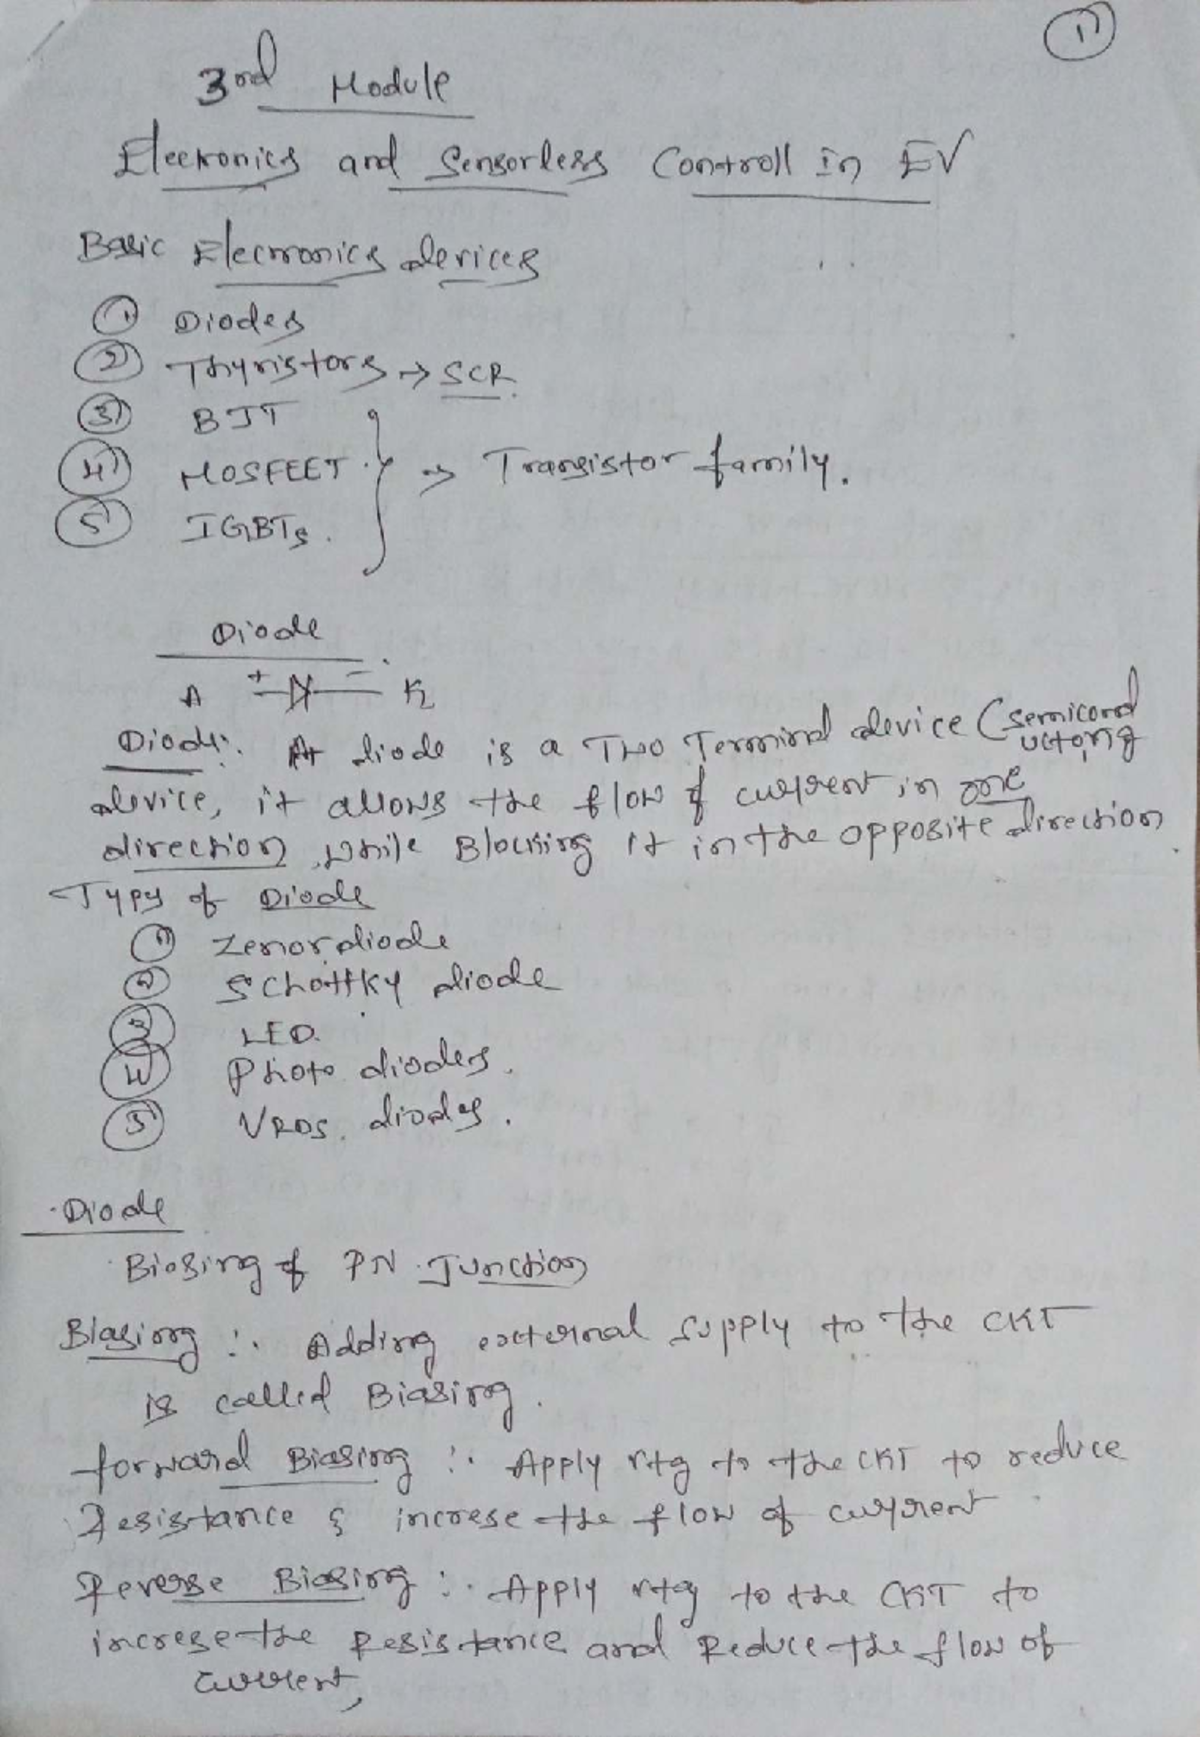 1)
3rd Module
Electronics and Sensorless Controll in EV
Basic Electronics devices
1) Diodes
2) Thyristors → SCR.
3) BJT
4) MOSFEET } ⇒ Transistor family.
5) IGBTs.
Diode
A + - K
Diode:. A diode is a Two Terminal device (semicond
uctong
device, it allows the flow of current in one
direction while Blocking it in the opposite direction.
Typy of Diode
1) Zenor diode
2) Schottky diode
3) LED.
4) Photo diodes.
5) VRDS. diodes.
Diode
Biasing of PN Junction
Biasing :. Adding external supply to the CKT
is called Biasing.
forward Biasing :. Apply vtg to the CKT to reduce
Resistance & increse the flow of current
Reverse Biasing :. Apply vtg to the CKT to
increse the Resistance and Reduce the flow of
current,